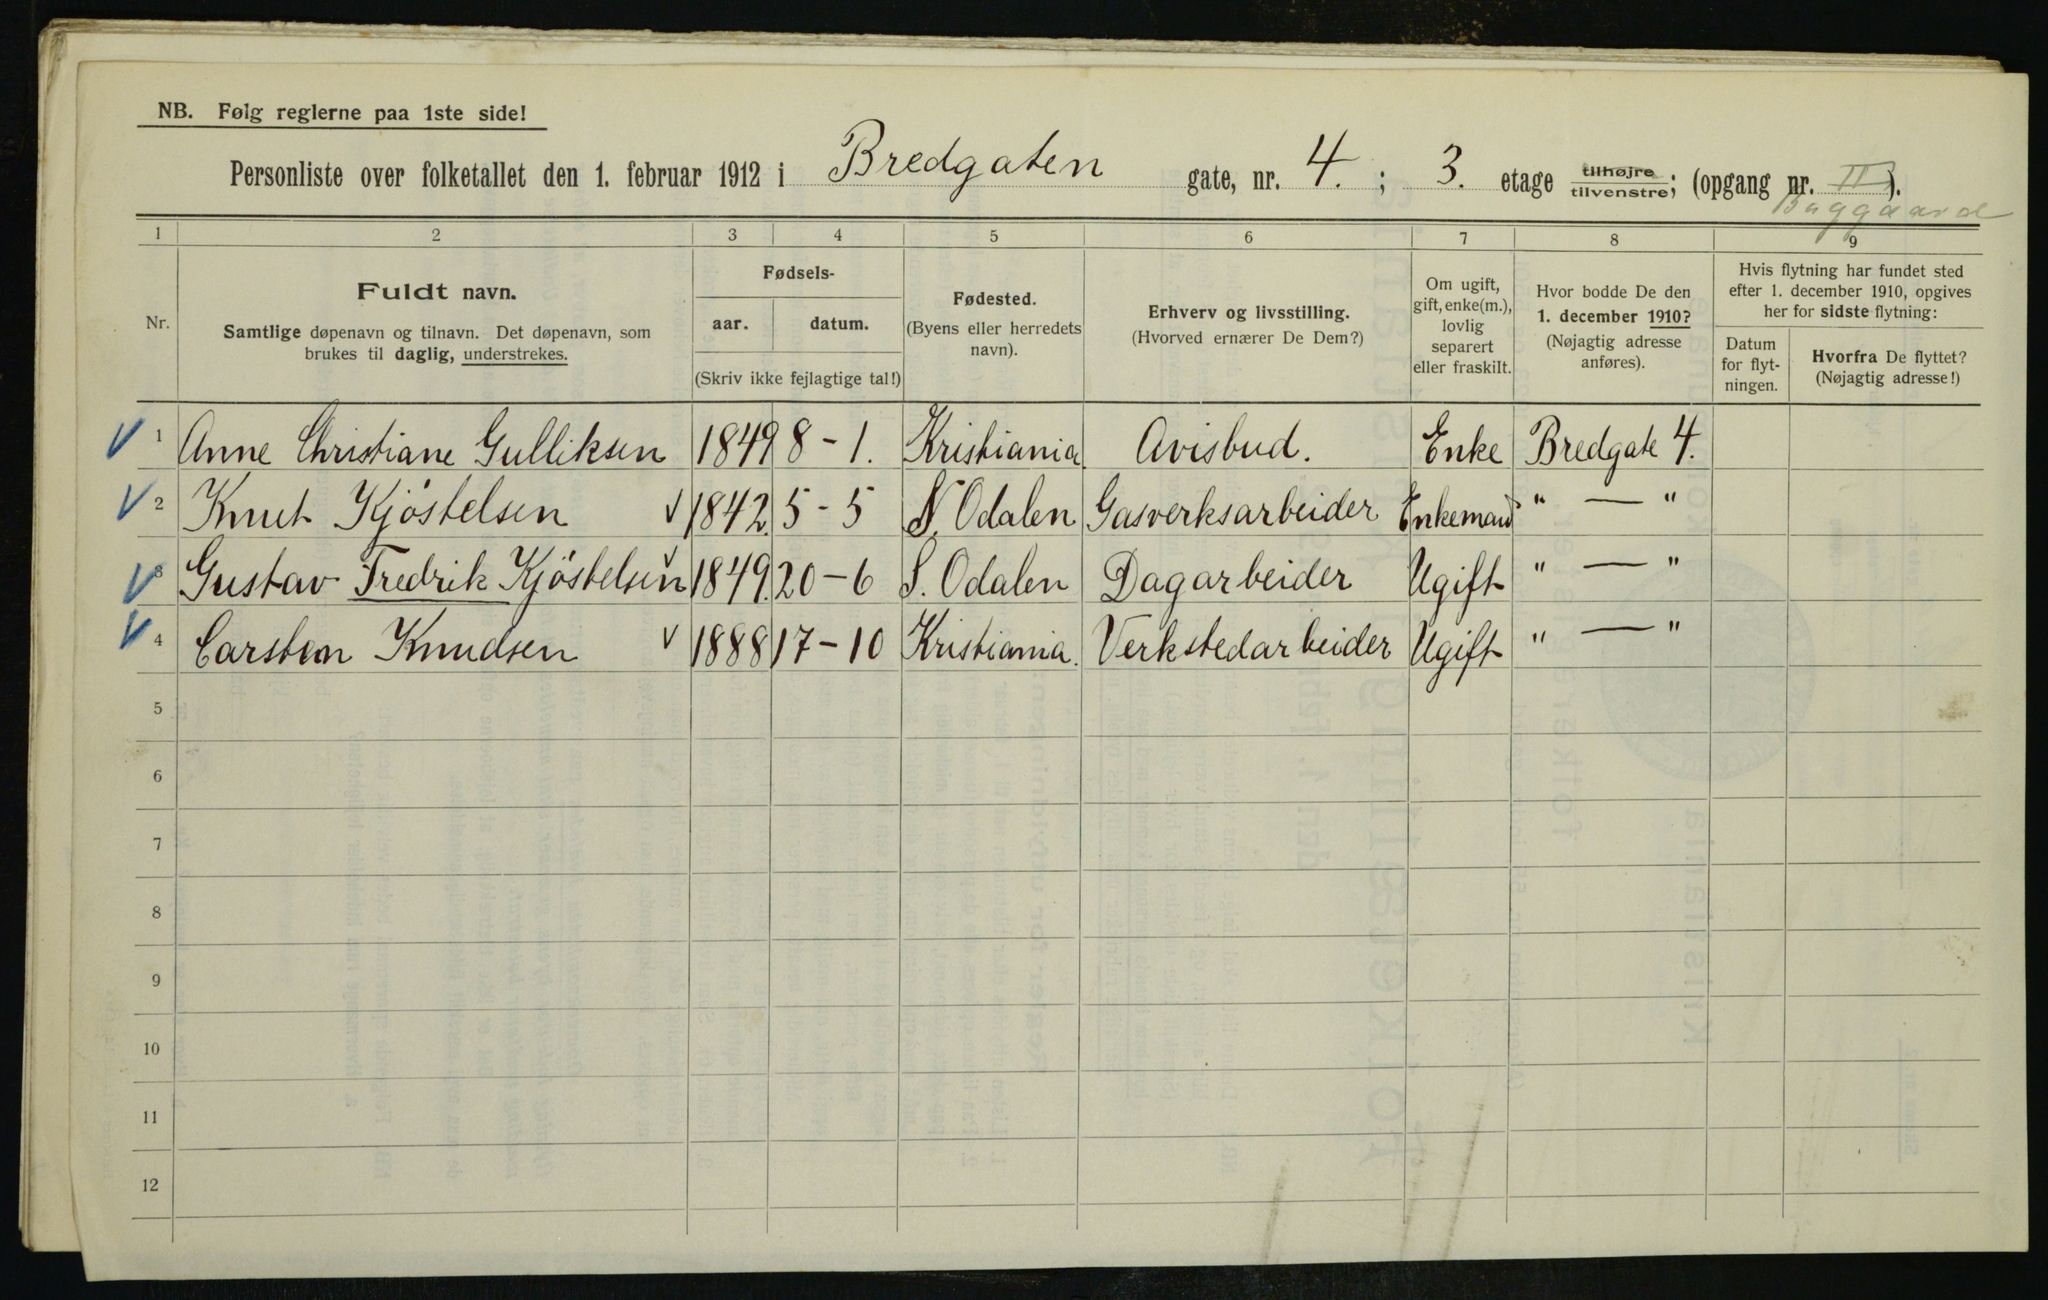 NB. Følg reglerne paa 1ste side!
Personliste over folketallet den 1. februar 1912 i Bredgaten gate, nr. 4. ; 3. etage tilhøjre tilvenstre; (opgang nr. II).
Baggaard
1 2 3 4 5 6 7 8 9
Nr.
Fuldt navn.
Samtlige døpenavn og tilnavn. Det døpenavn, som
brukes til daglig, understrekes.
Fødsels-
aar. datum.
(Skriv ikke fejlagtige tal!)
Fødested.
(Byens eller herredets
navn).
Erhverv og livsstilling.
(Hvorved ernærer De Dem?)
Om ugift,
gift, enke(m.),
lovlig
separert
eller fraskilt.
Hvor bodde De den
1. december 1910?
(Nøjagtig adresse
anføres).
Hvis flytning har fundet sted
efter 1. december 1910, opgives
her for sidste flytning:
Datum
for flyt-
ningen.
Hvorfra De flyttet?
(Nøjagtig adresse!)
1 Anne Christiane Gulliksen 1849 8 - 1. Kristiania. Avisbud. Enke Bredgate 4.
2 Knut Kjöstelsen 1842. 5 - 5 N. Odalen Gasverksarbeider Enkemand " — "
3 Gustav Fredrik Kjöstelsen 1849. 20 - 6 S. Odalen Dagarbeider Ugift " — "
4 Carsten Knudsen 1888 17 - 10 Kristiania. Verkstedarbeider Ugift " — "
5
6
7
8
9
10
11
12